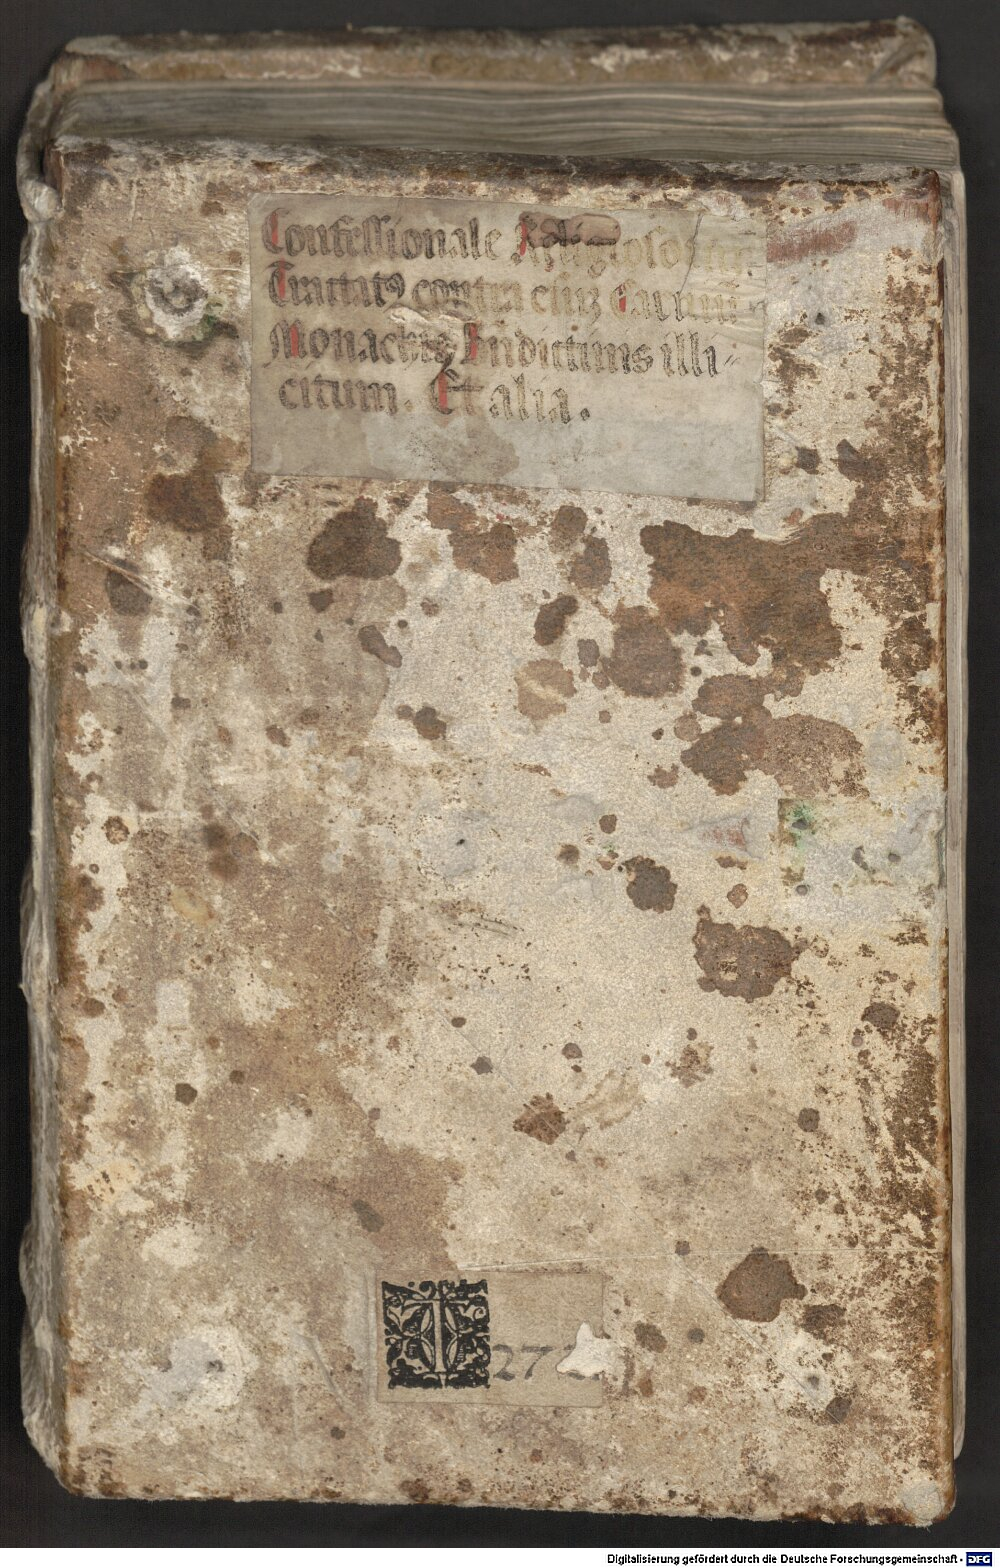 Confessionale Religioso
Tractatꝰ contra esuʒ Carniū
Monachis Sn̄dictinis illi⸗
citum. Et alia.
I 272
Digitalisierung gefördert durch die Deutsche Forschungsgemeinschaft - DFG